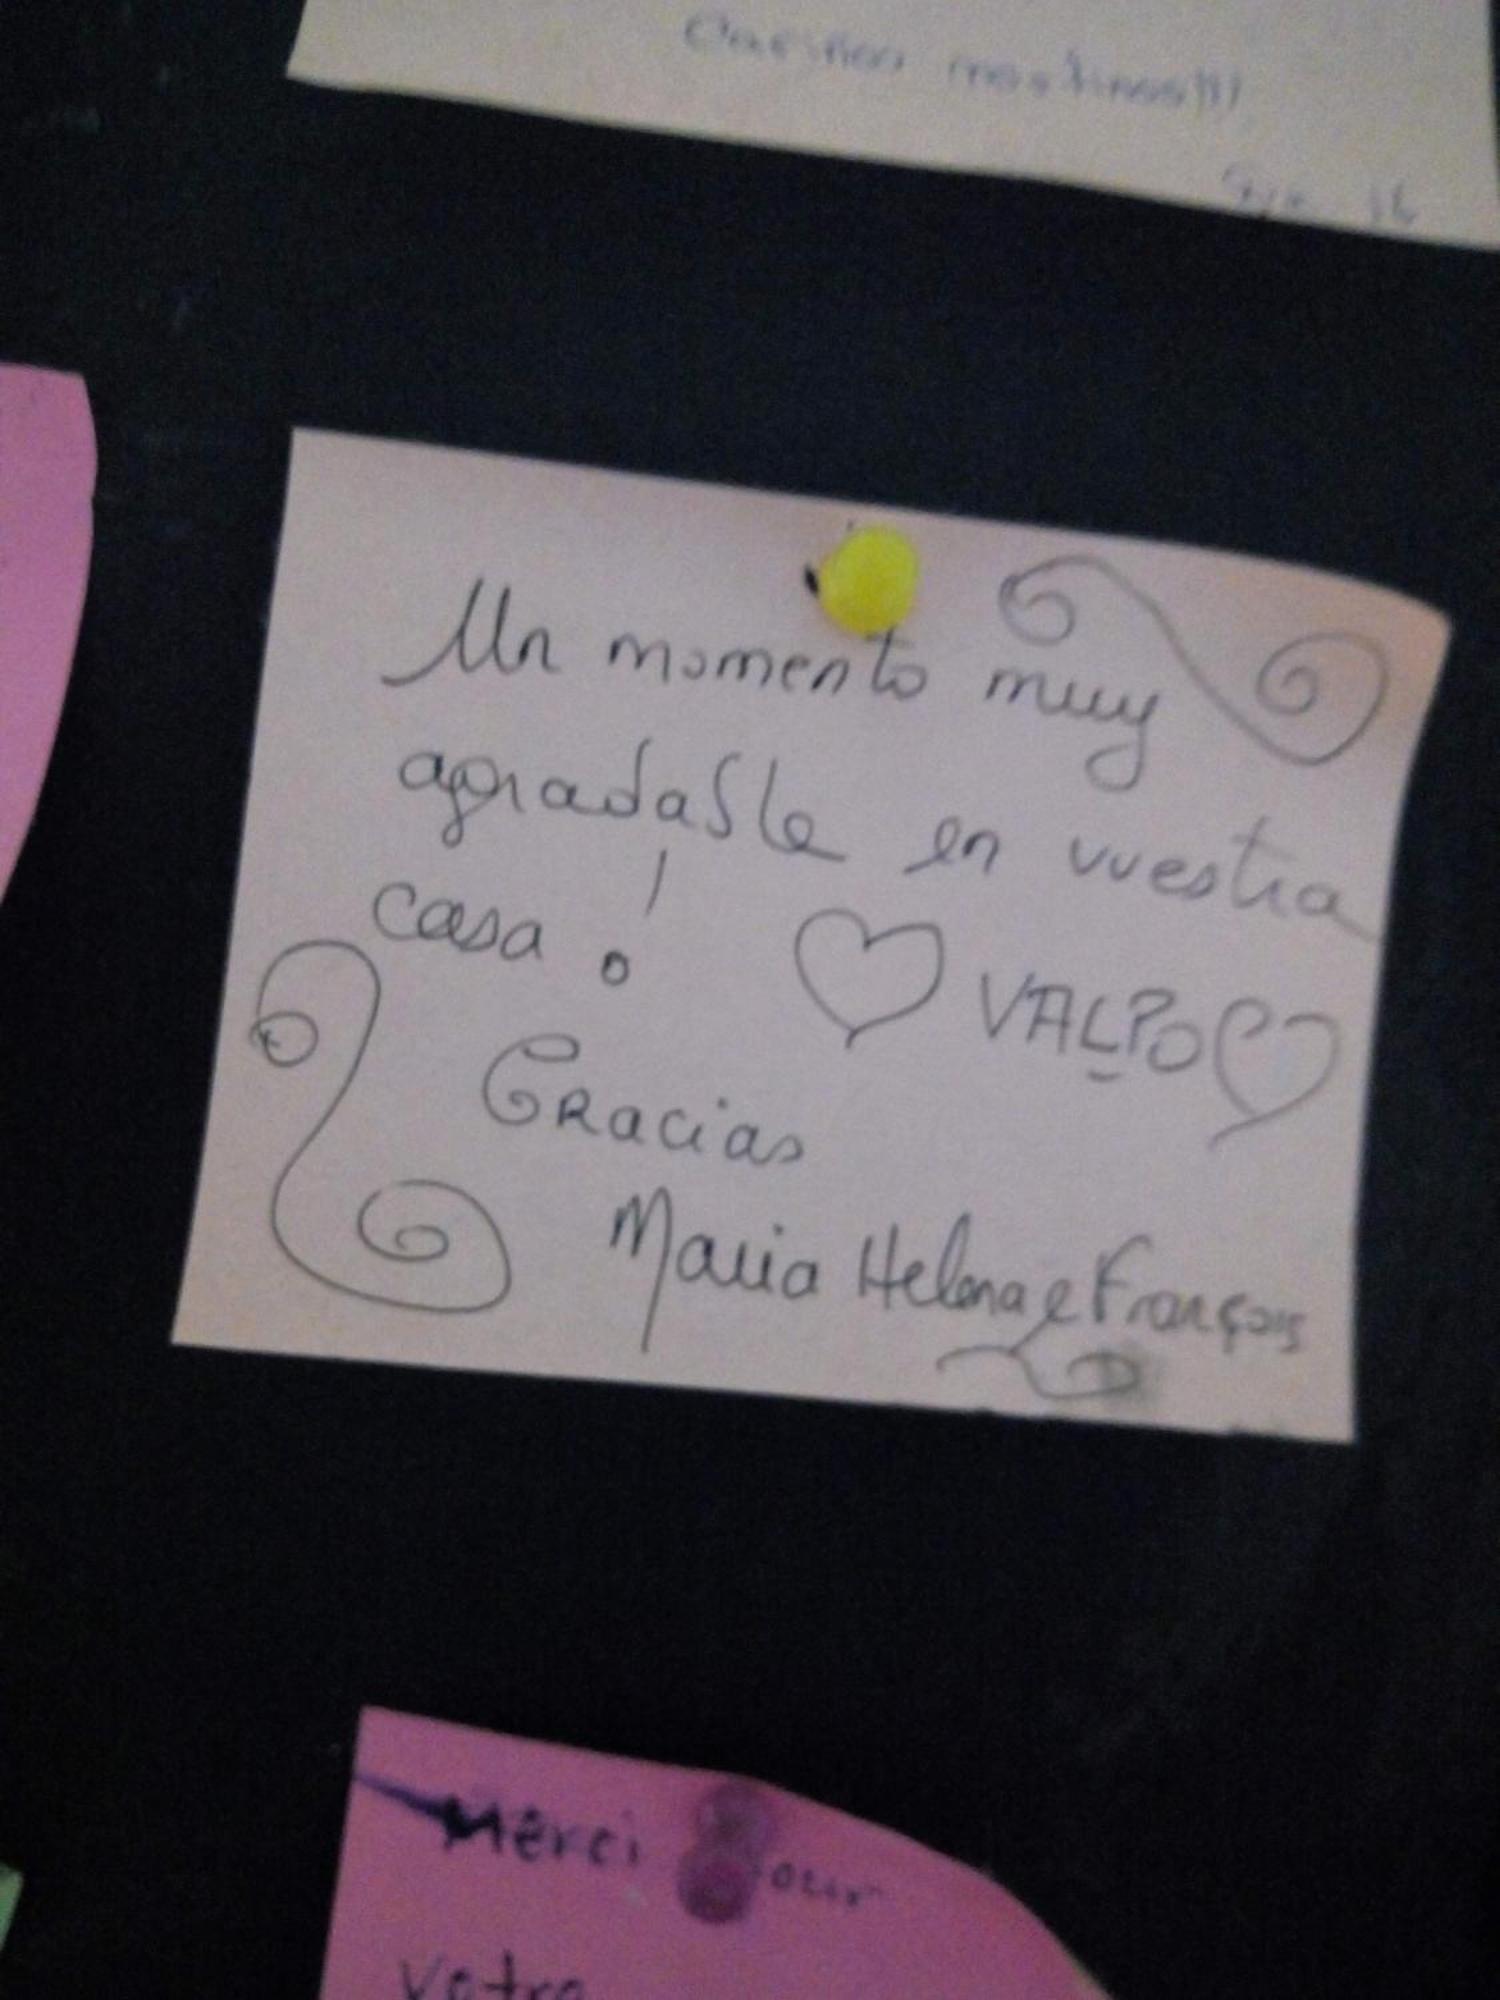 Un momento muy
agradable en vuestra
casa !
♡ VALPO ♡
Gracias
Maria Helena e François
Merci pour
votre